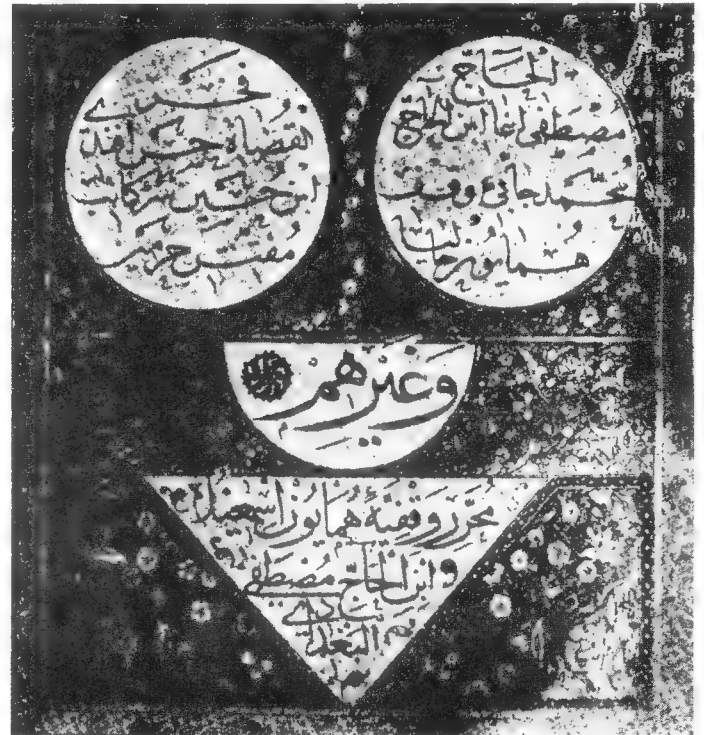 الحاج
مصطفى اغا ابن الحاج
محمد جابئ وقف
همايون
فخري
القضاة حسن افند
ابن حسين كاتب
مفتش حرمين
وغيرهم
محرر وقفيۀ همايون اسمعيل
وابن الحاج مصطفى
البغدادي